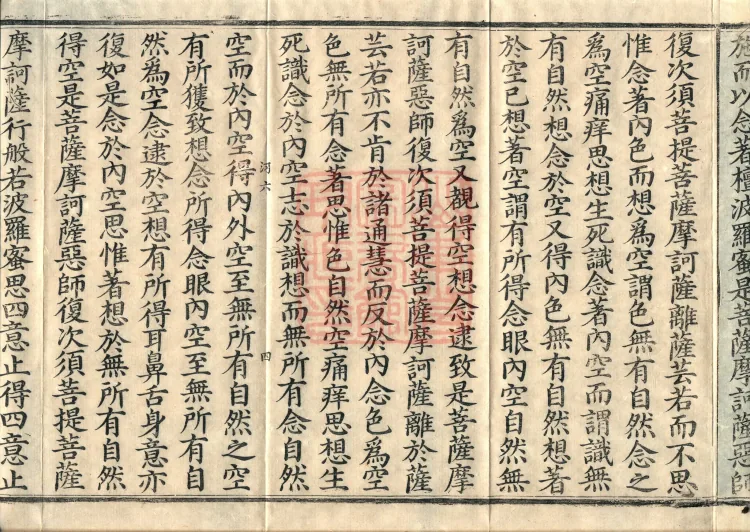 施而以念著檀波羅蜜是菩薩摩訶薩惡師
復次須菩提菩薩摩訶薩離薩芸若而不思
惟念著內色而想為空謂色無有自然念之
為空痛痒思想生死識念著內空而謂識無
有自然想念於空又得內色無有自然想著
於空已想著空謂有所得念眼內空自然無
有自然為空又觀得空想念逮致是菩薩摩
訶薩惡師復次須菩提菩薩摩訶薩離於薩
芸若亦不肯於諸通慧而反於內念色為空
色無所有念著思惟色自然空痛痒思想生
死識念於內空志於識想而無所有念自然
空而於內空得內外空至無所有自然之空
河六
四
有所獲致想念所得念眼內空至無所有自
然為空念逮於空想有所得耳鼻舌身意亦
復如是念於內空思惟著想於無所有自然
得空是菩薩摩訶薩惡師復次須菩提菩薩
摩訶薩行般若波羅蜜思四意止得四意止